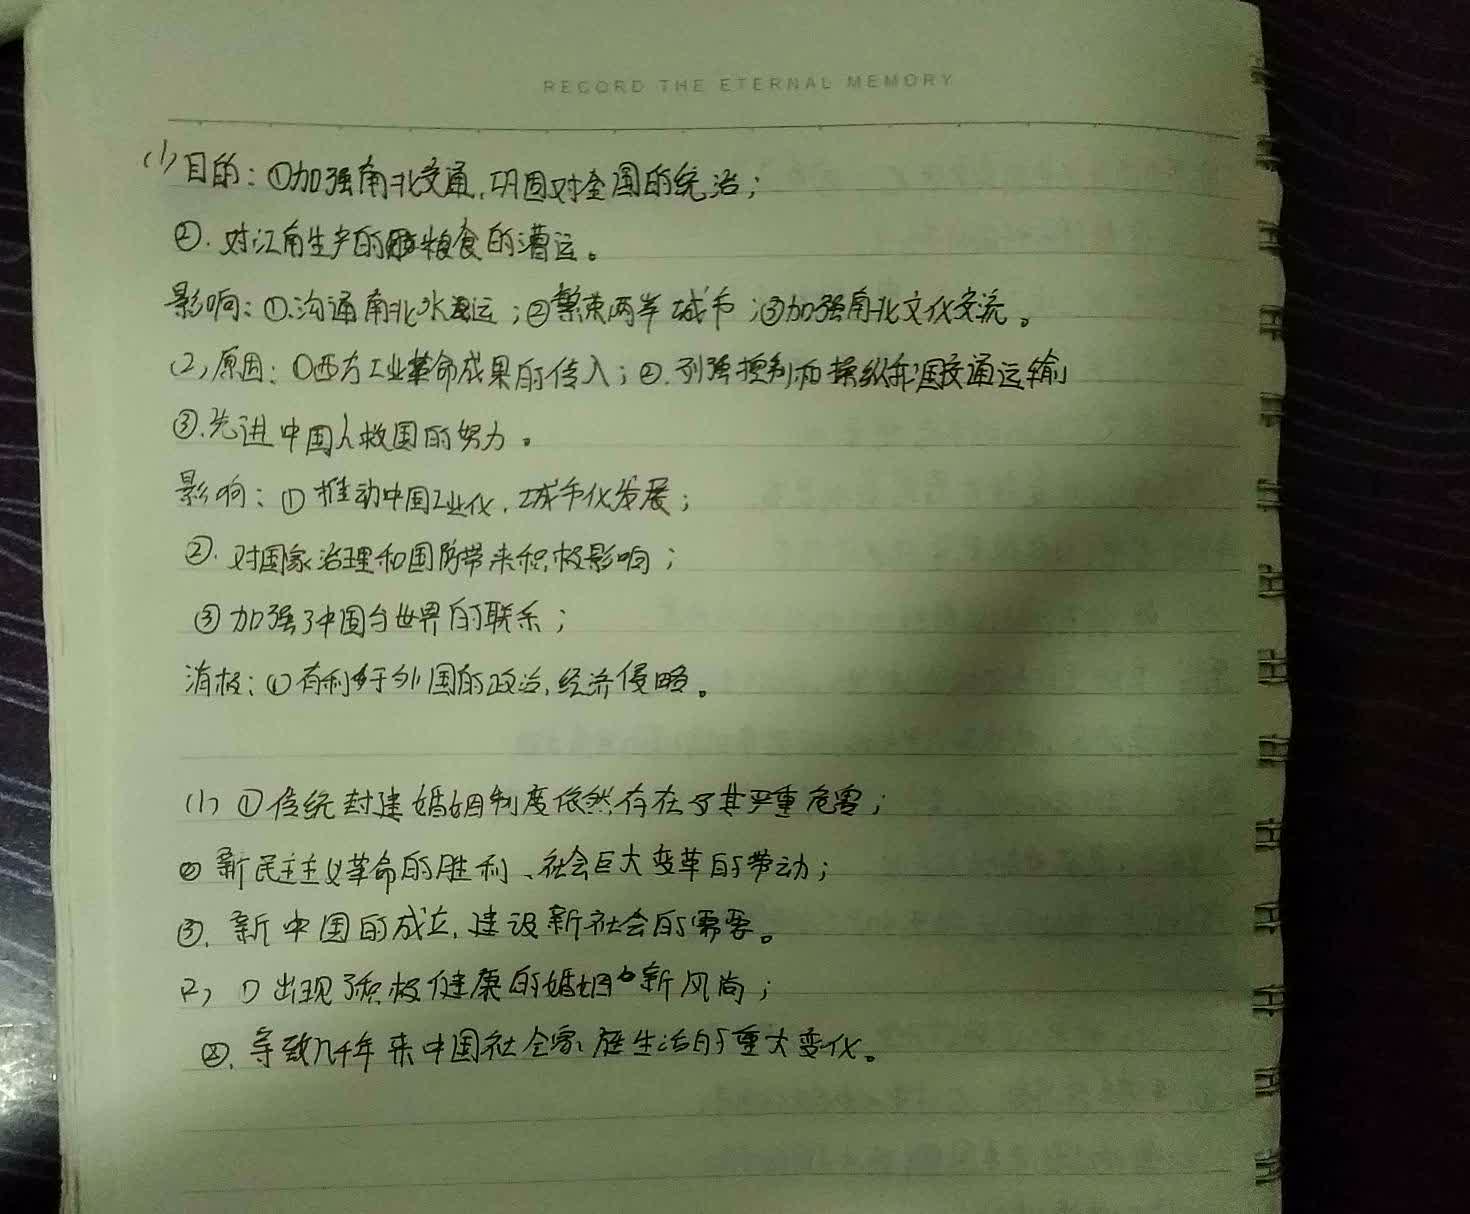 RECORD THE ETERNAL MEMORY
(1)目的：①加强南北交通，巩固对全国的统治；
②.对江南生产的粮食的漕运。
影响：①.沟通南北水运；②繁荣两岸城市；③加强南北文化交流。
(2)原因：①西方工业革命成果的传入；②.列强控制和操纵我国交通运输
③.先进中国人救国的努力。
影响：①推动中国工业化、城市化发展；
②.对国家治理和国防带来积极影响；
③加强了中国与世界的联系；
消极：①有利于外国的政治，经济侵略。
(1)①传统封建婚姻制度依然存在了其严重危害；
②新民主主义革命的胜利、社会巨大变革的带动；
③.新中国的成立，建设新社会的需要。
2)1)出现了积极健康的婚姻新风尚；
②.导致几千年来中国社会家庭生活的重大变化。